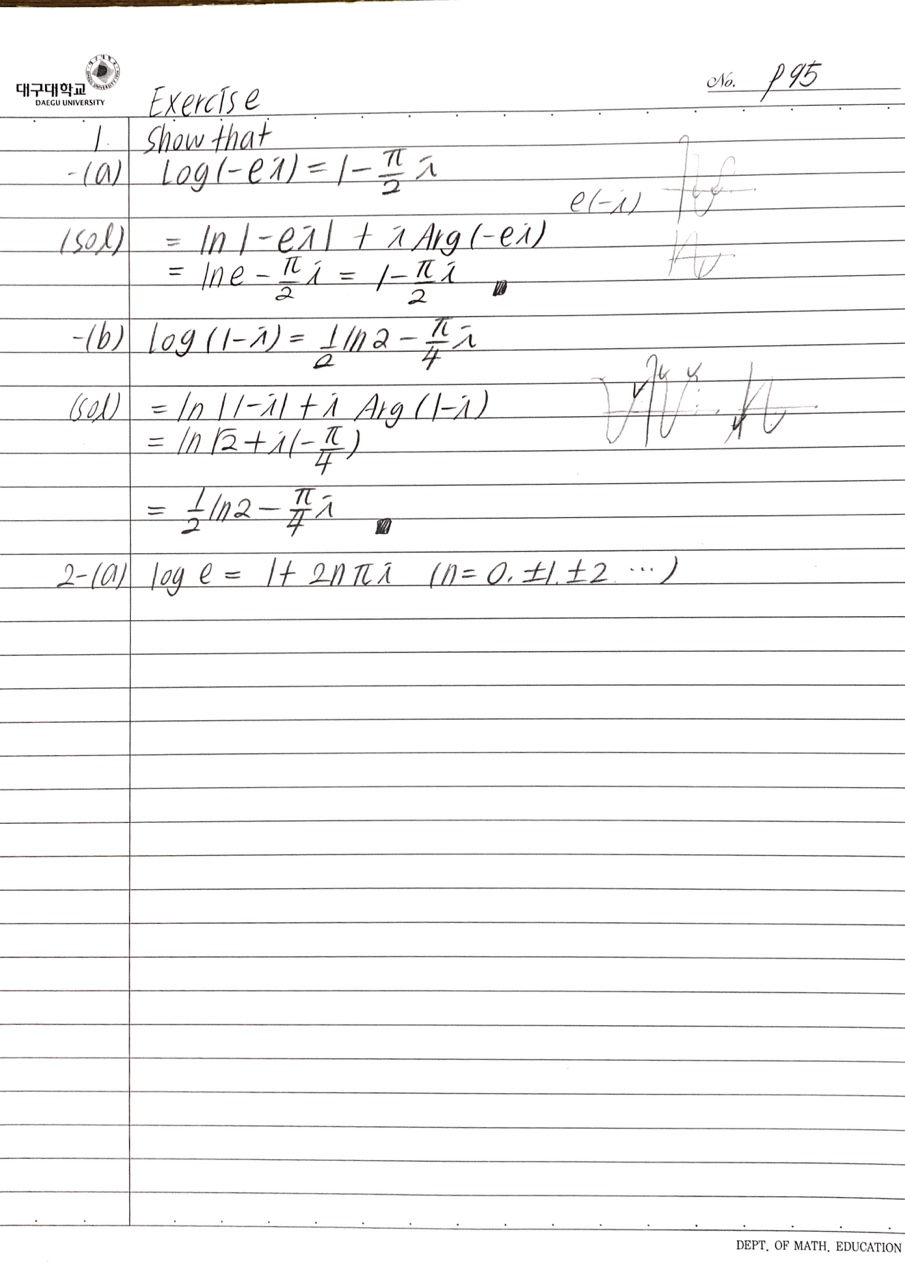 대구대학교
DAEGU UNIVERSITY
No. p95
Exercise
1. Show that
-(a) Log(-ei) = 1 - π/2 i
e(-i)
(sol) = ln |-ei| + i Arg(-ei)
= ln e - π/2 i = 1 - π/2 i
-(b) log (1-i) = 1/2 ln2 - π/4 i
(sol) = ln |1-i| + i Arg (1-i)
= ln √2 + i(-π/4)
= 1/2 ln2 - π/4 i
2-(a) log e = 1 + 2nπi (n = 0. ±1. ±2 ⋯)
DEPT. OF MATH. EDUCATION